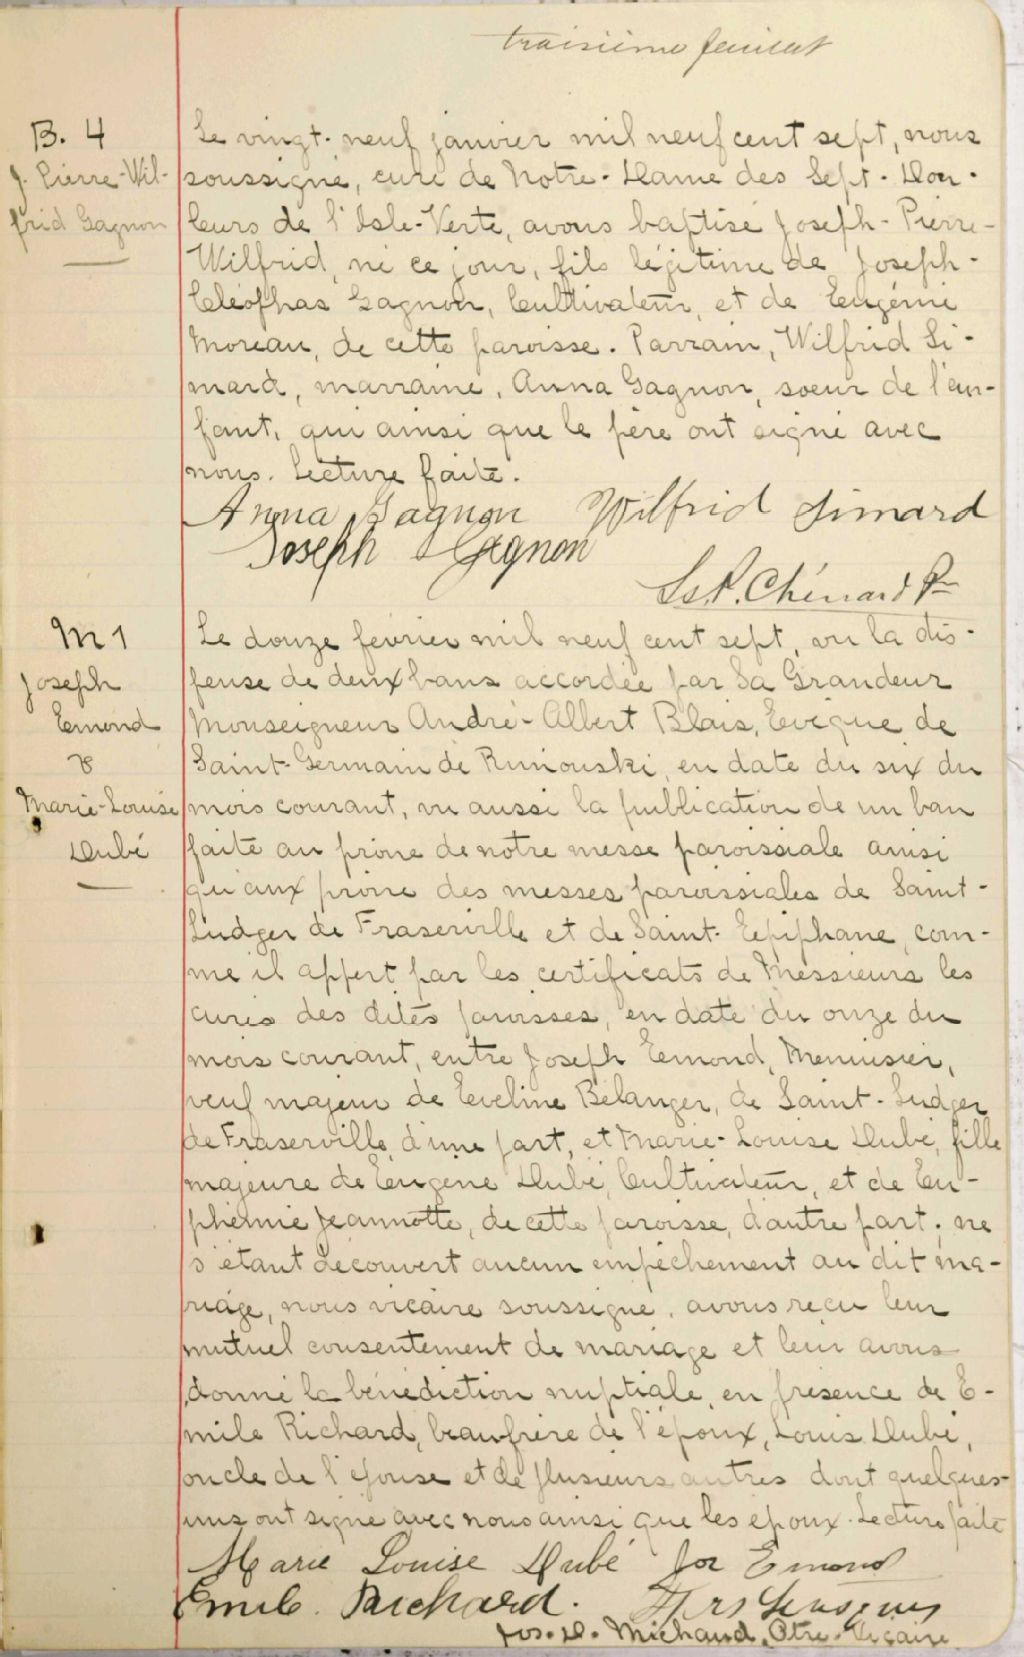 troisième feuillet
B. 4
J. Pierre-Wil-
frid Gagnon
Le vingt-neuf janvier mil neuf cent sept, nous
soussigné, curé de Notre-Dame des Sept-Dou-
leurs de l'Isle-Verte, avons baptisé Joseph-Pierre-
Wilfrid, né ce jour, fils légitime de Joseph-
Cléophas Gagnon, Cultivateur, et de Eugénie
Moreau, de cette paroisse. Parrain, Wilfrid Si-
mard, marraine, Anna Gagnon, soeur de l'en-
fant, qui ainsi que le père ont signé avec
nous. Lecture faite.
Anna Gagnon Wilfrid Simard
Joseph Gagnon
Ls P. Chénard Ptre
M 1
Joseph
Emond
&
Marie-Louise
Dubé
Le douze février mil neuf cent sept, vu la dis-
pense de deux bans accordée par Sa Grandeur
Monseigneur André-Albert Blais, Evêque de
Saint-Germain de Rimouski, en date du six du
mois courant, vu aussi la publication de un ban
faite au prône de notre messe paroissiale ainsi
qu'aux prône des messes paroissiales de Saint-
Ludger de Fraserville et de Saint-Epiphane, com-
me il appert par les certificats de Messieurs les
curés des dites paroisses, en date du onze du
mois courant, entre Joseph Emond, Menuisier,
veuf majeur de Eveline Bélanger, de Saint-Ludger
de Fraserville, d'une part, et Marie-Louise Dubé, fille
majeure de Eugène Dubé, Cultivateur, et de Eu-
phémie Jeannotte, de cette paroisse, d'autre part; ne
s'étant découvert aucun empêchement au dit ma-
riage, nous vicaire soussigné, avons reçu leur
mutuel consentement de mariage et leur avons
donné la bénédiction nuptiale, en présence de E-
mile Richard, beaufrère de l'époux, Louis Dubé,
oncle de l'épouse et de plusieurs autres dont quelques-
uns ont signé avec nous ainsi que les époux. Lecture faite
Marie Louise Dubé Jos Emond
Emile Richard.
Jos. D. Michaud, Ptre. Vicaire